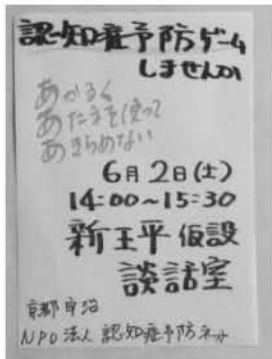 認知症予防ゲーム
しませんか
あかるく
あたまを使って
あきらめない
6月2日(土)
14:00~15:30
新王平仮設
談話室
京都宇治
NPO法人 認知症予防ネット